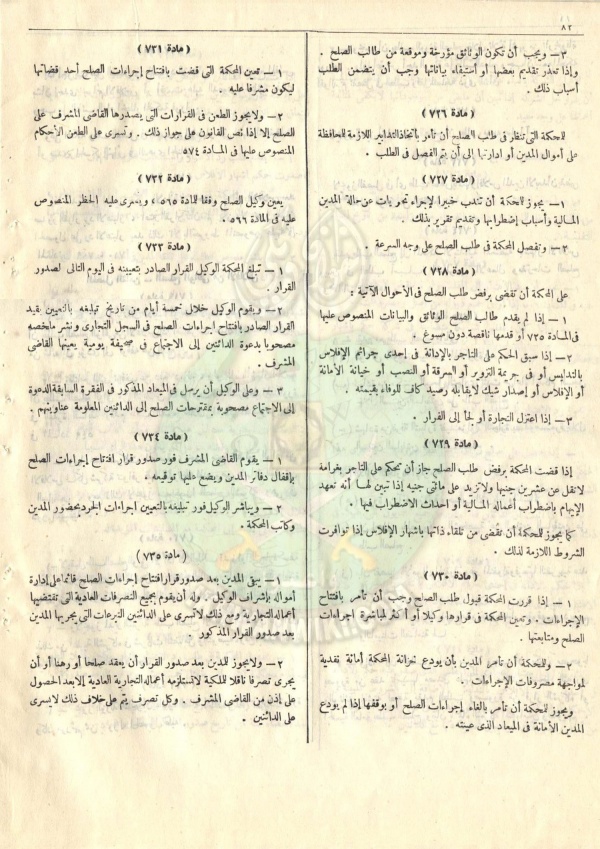 ٨٢
٣ — ويجب أن تكون الوثائق مؤرخة وموقعة من طالب الصلح .
وإذا تعذر تقديم بعضها أو استيفاء بياناتها وجب أن يتضمن الطلب
أسباب ذلك .
( مادة ٧٢٦ )
للمحكمة التى تنظر فى طلب الصلح أن تأمر باتخاذ التدابير اللازمة للمحافظة
على أموال المدين أو ادارتها إلى أن يتم الفصل فى الطلب .
( مادة ٧٢٧ )
١ — يجوز للمحكمة أن تندب خبيرا لإجراء تحريات عن حالة المدين
المالية وأسباب إضطرابها وتقديم تقرير بذلك .
٢ — وتفصل المحكمة فى طلب الصلح على وجه السرعة .
( مادة ٧٢٨ )
على المحكمة أن تقضى برفض طلب الصلح فى الأحوال الآتية :
١ — إذا لم يقدم طالب الصلح الوثائق والبيانات المنصوص عليها
فى المادة ٧٢٥ أو قدمها ناقصة دون مسوغ .
٢ — إذا سبق الحكم على التاجر بالإدانة فى إحدى جرائم الإفلاس
بالتدليس أو فى جريمة التزوير أو السرقة أو النصب أو خيانة الأمانة
أو الإفلاس أو إصدار شيك لايقابله رصيد كاف للوفاء بقيمته .
٣ — إذا اعتزل التجارة أو لجأ إلى الفرار .
( مادة ٧٢٩ )
إذا قضت المحكمة برفض طلب الصلح جاز أن تحكم على التاجر بغرامة
لاتقل عن عشرين جنيها ولاتزيد على مائتى جنيه إذا تبين لها أنه تعهد
الإيهام باضطراب أعماله المالية أو احداث الاضطراب فيها .
كما يجوز للمحكمة أن تقضى من تلقاء ذاتها باشهار الإفلاس إذا توافرت
الشروط اللازمة لذلك .
( مادة ٧٣٠ )
١ — إذا قررت المحكمة قبول طلب الصلح وجب أن تأمر بافتتاح
الإجراءات . وتعين المحكمة فى قرارها وكيلا أو أكثر لمباشرة إجراءات
الصلح ومتابعتها .
٢ — وللمحكمة أن تأمر المدين بأن يودع خزانة المحكمة أمانة نقدية
لمواجهة مصروفات الإجراءات .
ويجوز للمحكمة أن تأمر بالغاء إجراءات الصلح أو بوقفها إذا لم يودع
المدين الأمانة فى الميعاد الذى عينته .
( مادة ٧٣١ )
١ — تعين المحكمة التى قضت بافتتاح إجراءات الصلح أحد قضاتها
ليكون مشرفا عليه .
٢ — ولايجوز الطعن فى القرارات التى يصدرها القاضى المشرف على
الصلح إلا إذا نص القانون على جواز ذلك . وتسرى على الطعن الأحكام
المنصوص عليها فى المادة ٥٧٤
( مادة ٧٣٢ )
يعين وكيل الصلح وفقا للمادة ٥٦٥ ، ويسرى عليه الحظر المنصوص
عليه فى المادة ٥٦٦ .
( مادة ٧٣٣ )
١ — تبلغ المحكمة الوكيل القرار الصادر بتعيينه فى اليوم التالى لصدور
القرار .
٢ — ويقوم الوكيل خلال خمسة أيام من تاريخ تبليغه بالتعيين بقيد
القرار الصادر بافتتاح إجراءات الصلح فى السجل التجارى ونشر ملخصه
مصحوبا بدعوة الدائنين إلى الاجتماع فى صحيفة يومية يعينها القاضى
المشرف .
٣ — وعلى الوكيل أن يرسل فى الميعاد المذكور فى الفقرة السابقة الدعوة
إلى الاجتماع مصحوبة بمقترحات الصلح إلى الدائنين المعلومة عناوينهم .
( مادة ٧٣٤ )
١ — يقوم القاضى المشرف فور صدور قرار افتتاح إجراءات الصلح
بإقفال دفاتر المدين ويضع عليها توقيعه .
٢ — ويباشر الوكيل فور تبليغه بالتعيين اجراءات الجرد بحضور المدين
وكاتب المحكمة .
( مادة ٧٣٥ )
١ — يبقى المدين بعد صدور قرار افتتاح إجراءات الصلح قائما على إدارة
أمواله بإشراف الوكيل . وله أن يقوم بجميع التصرفات العادية التى تقتضيها
أعماله التجارية ومع ذلك لاتسرى على الدائنين التبرعات التى يجريها المدين
بعد صدور القرار المذكور .
٢ — ولايجوز للمدين بعد صدور القرار أن يعقد صلحا أو رهنا أو أن
يجرى تصرفا ناقلا للملكية لاتستلزمه أعماله التجارية العادية إلا بعد الحصول
على إذن من القاضى المشرف . وكل تصرف يتم على خلاف ذلك لايسرى
على الدائنين .